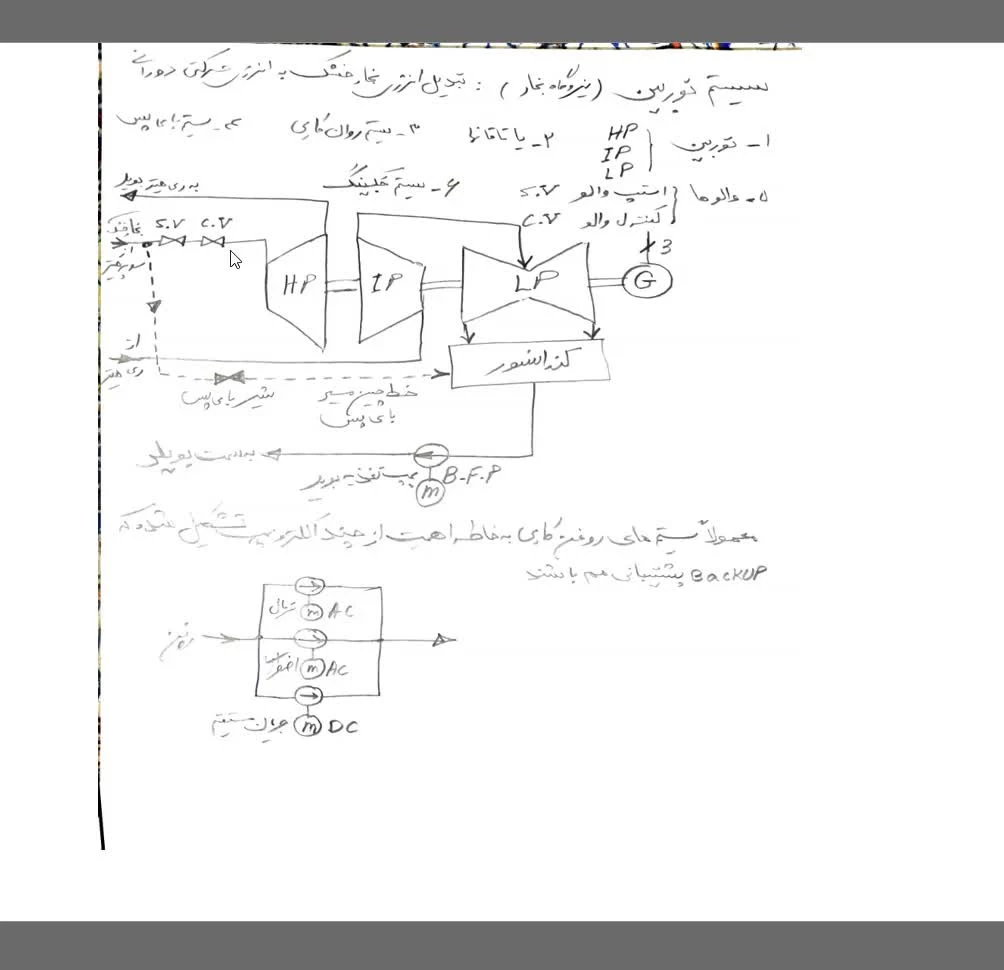 سیستم توربین (نیروگاه بخار) : تبدیل انرژی بخار خشک به انرژی حرکتی دورانی
۱- توربین { HP IP LP ۲- یاتاقانها ۳- سیستم روانکاری ۴- سیستم بای پس
۵- والوها { استپ والو S.V ۶- سیستم جکینگ
کنترل والو C.V
به ری هیتر بویلر
بخار خشک از سوپرهیتر
S.V C.V
HP IP LP G 3
از ری هیتر
کندانسور
شیر بای پس
خط چین مسیر بای پس
به سمت بویلر
پمپ تغذیه بویلر B.F.P
m
معمولاً سیستم های روغن کاری به خاطر اهمیت از چند الکتروپمپ تشکیل شده که
BackUP پشتیبانی هم باشند
نرمال m AC
روغن
اضطراری m AC
جریان مستقیم m DC